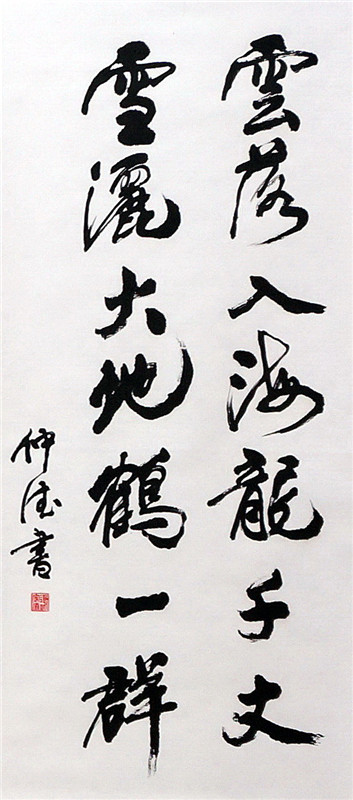 雲落入海龍千丈
雪灑大地鶴一群
仲法書